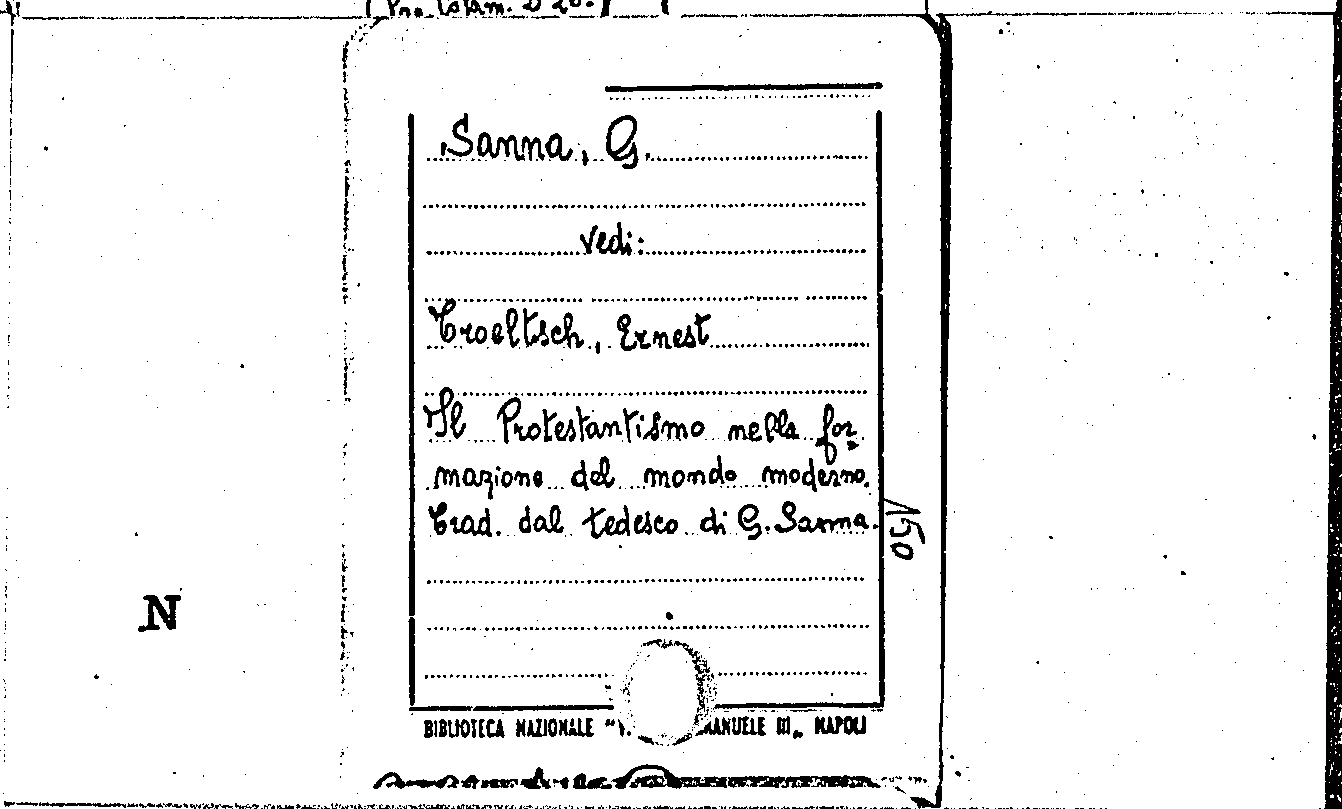 Sanna, G.
vedi:
Troeltsch, Ernest
Il Protestantismo nella for=
mazione del mondo moderno.
Trad. dal tedesco di G. Sanna.
150
N
BIBLIOTECA NAZIONALE "V. MANUELE III„ NAPOLI